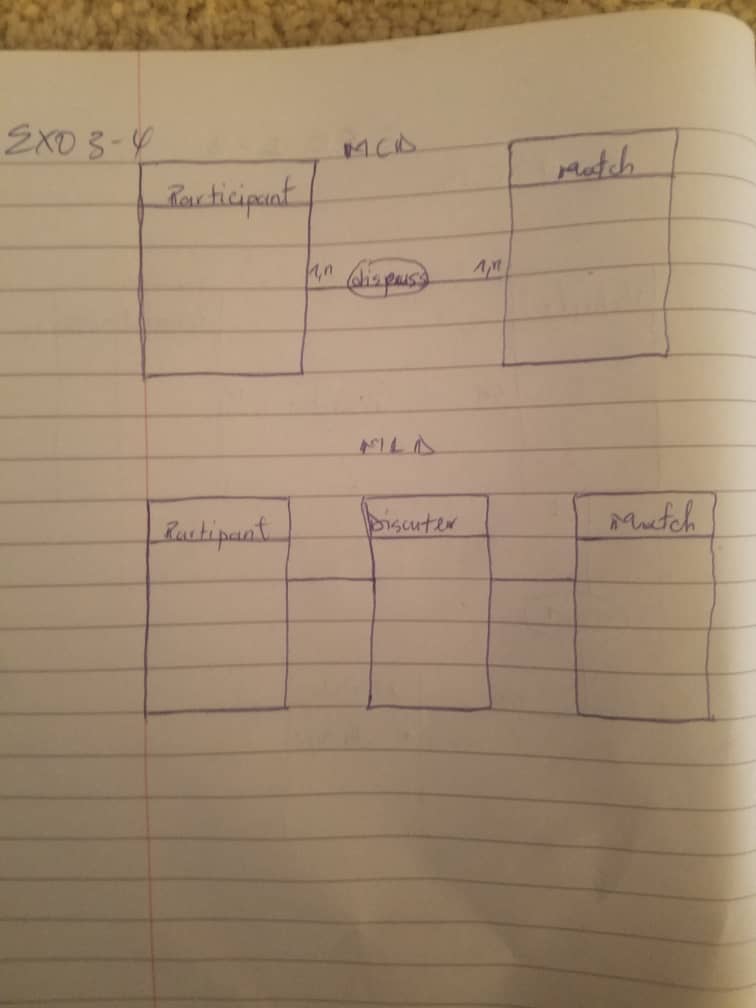 EXO 3-4
MCD
Participant
match
1,n
1,n
MLD
Partipant
Discuter
match